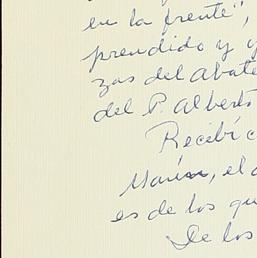 en la frente",
prendido y y
zas del Abate
del P. Alberto
Recibí c
Marín, el a
es de los qu
De los